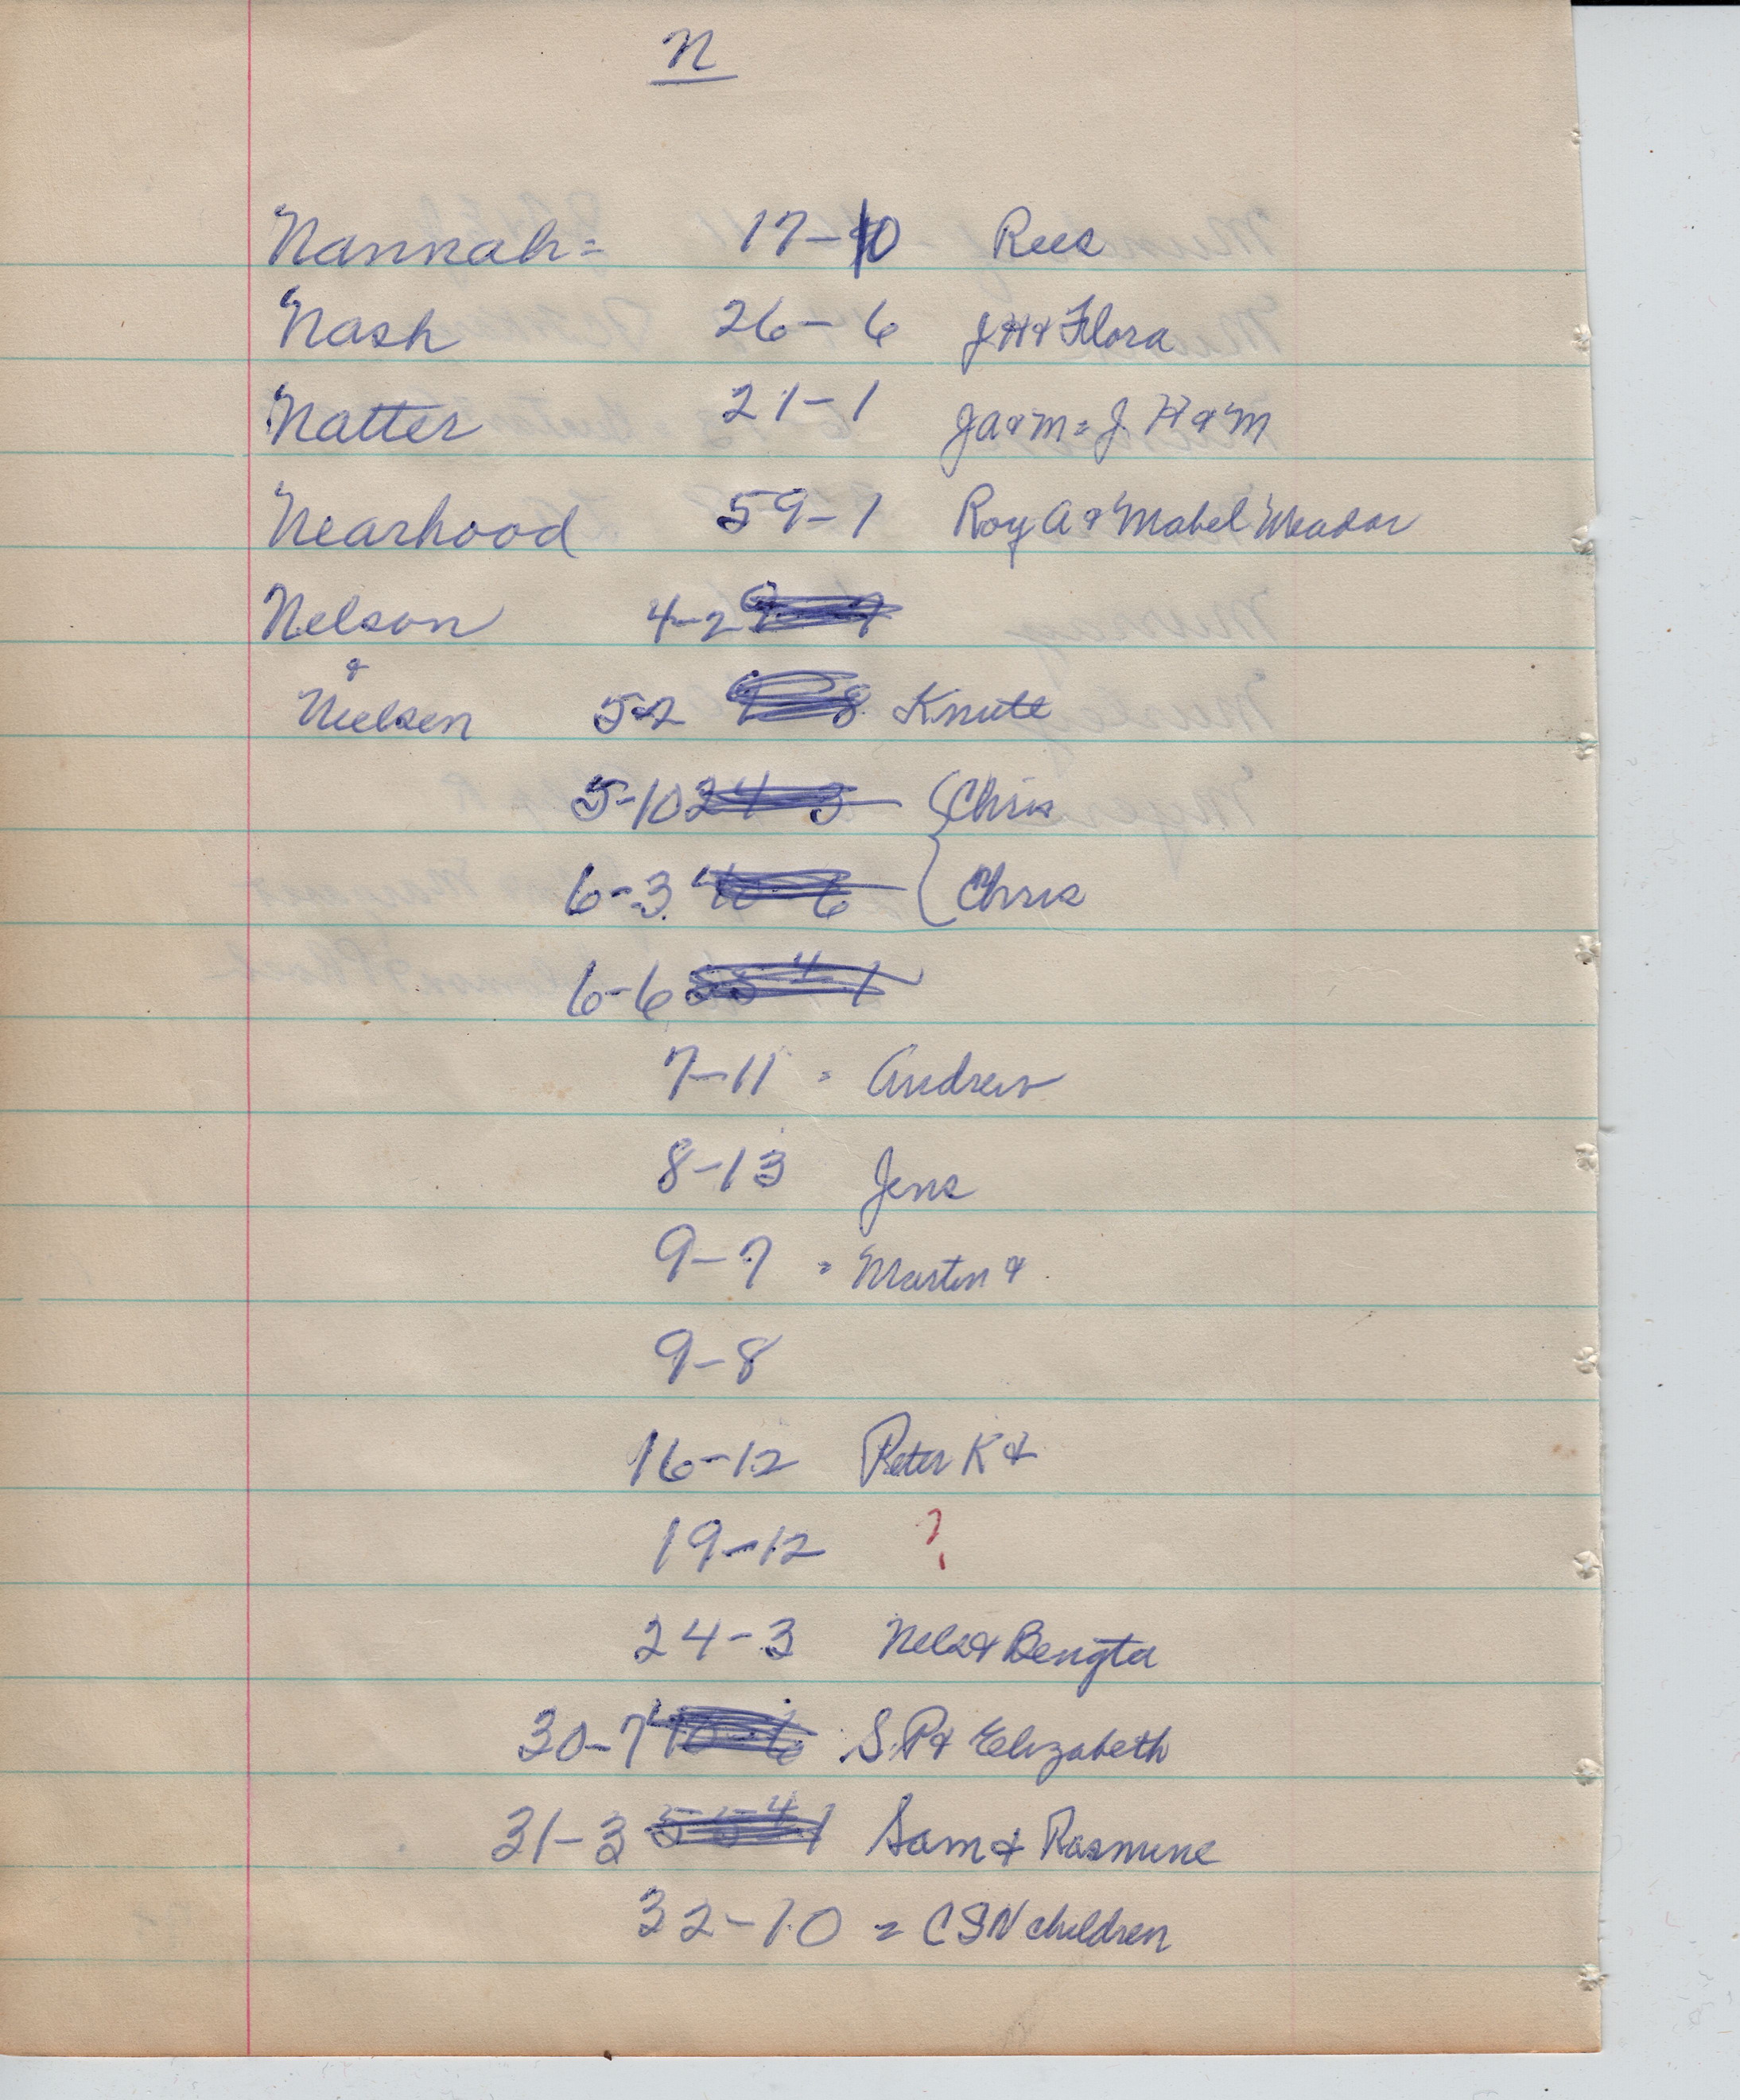 N
Nannah = 17-10 Rees
Nash 26-6 J H & Flora
Natter 21-1 J A & M = J. H & M
Nearhood 59-1 Roy A & Mabel Meador
Nelson 4-2
&
Nielsen 5-2 Knute
5-10 Chris
6-3 Chris
6-6
7-11 = Andrew
8-13 Jens
9-7 = Martin &
9-8
16-12 Peter K &
19-12 ?
24-3 Nels & Bengta
30-7 S. P & Elizabeth
31-3 Sam & Rasmine
32-10 = C S N children